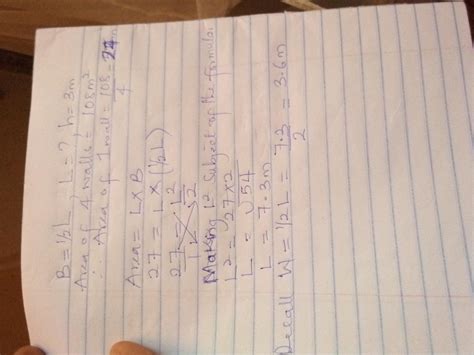 B = ½L, L = ?, h = 3m
Area of 4 walls = 108m²
∴ Area of 1 wall = 108/4 = 27m
Area = L x B
27 = L x (½L)
27/1 = L²/2
Making L² Subject of the formular
L² = 27x2
L = √54
L = 7.3m
Recall W = ½L = 7.3/2 = 3.6m